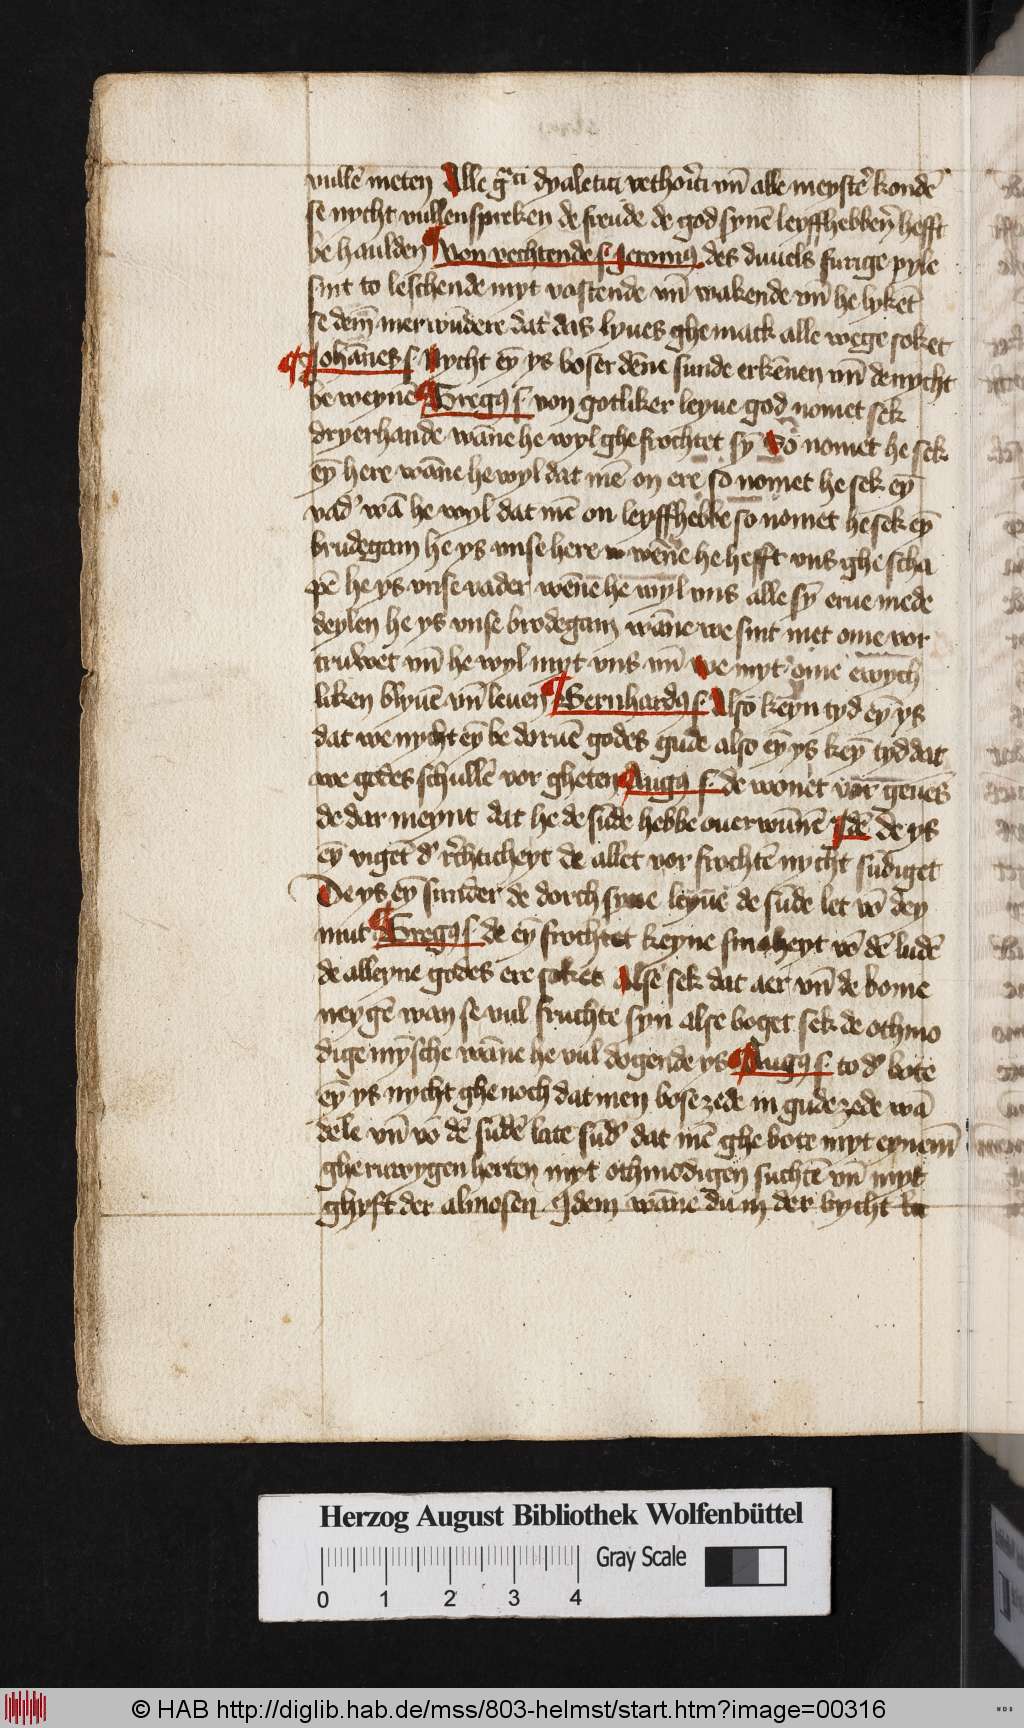 vullē meten Alle g͛ci dyaletici rethorici vn̄ alle meyst͛e kondē
se nycht vullenspreken de freude de god synē leyffhebbe͛n hefft
be haulden von vechtende s. Jeronimꝰ des duuels furige pyle
sint to leschende myt vastende vn̄ wakende vn̄ he lyket
se dem̄ mer wūdere dat das lyues ghemack alle wege soket
¶ Johānes s. Nycht ey̅ ys boser dēne sunde erkēnen vn̄ de nycht
be weynē Gregꝰ s. von gotliker leyue god nomet sek
dryerhande wāne he wyl ghefrochtet sy so nomet he sek
ey̅ here wāne he wyl dat mē on ere so nomet he sek ey̅
vad͛ wā he wyl dat mē on leyffhebbe so nomet he sek ey̅
brudegam he ys vnse here wēne he hefft vns ghescha
pē he ys vnse vader wēne he wyl vns alle sȳ erue mede
deylen he ys vnse brodegam wāne we sint met ome vor
truwet vn̄ he wyl myt vns vn̄ we myt ome ewych
liken blyuē vn̄ leuen Bernhardꝰ s. Also keyn tyd ey̅ ys
dat we nycht ey̅ be doruē godes gude also ey̅ ys key̅ tyd dat
we godes schullē vor gheten Augꝰ s. de wonet vor geues
de dar meynt dat he de sūde hebbe ouerwūnē Idē de ys
ey̅ viget d͛ r͛chticheyt de allet vor frochtē nycht sūdiget
De ys ey̅ frūder de dorch syne leyue de sūde let vō dey
mut Gregꝰ s. de ey̅ frochtet keyne smaheyt vō dē ludē
de alleyne godes ere soket Alse sek dat aer vn̄ de bome
neygē wan se vul fruchte syn alse boget sek de othmo
dige mȳsche wāne he vul dogende ys Augꝰ s. to d͛ bote
ey̅ ys nycht ghenoch dat men bose zede in gude zede wā
dele vn̄ vō dē sūdē late sud͛ dat mē ghe bote myt eynem̄
gheruwygen herten myt othmodigen suchtē vn̄ myt
ghyft der almosen Idem wāne du in der bycht
Herzog August Bibliothek Wolfenbüttel
Gray Scale
0 1 2 3 4
© HAB http://diglib.hab.de/mss/803-helmst/start.htm?image=00316